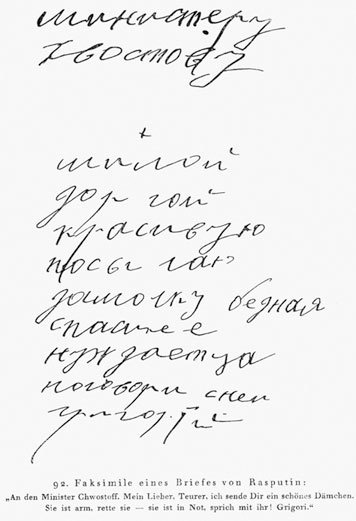 министеру
хвостову
+
милой
дор гой
красивую
посылаю
дамочку бедная
спаси ее
нуждаетца
поговори снеи
григорий
92. Faksimile eines Briefes von Rasputin:
„An den Minister Chwostoff. Mein Lieber, Teurer, ich sende Dir ein schönes Dämchen.
Sie ist arm, rette sie — sie ist in Not, sprich mit ihr! Grigori.“